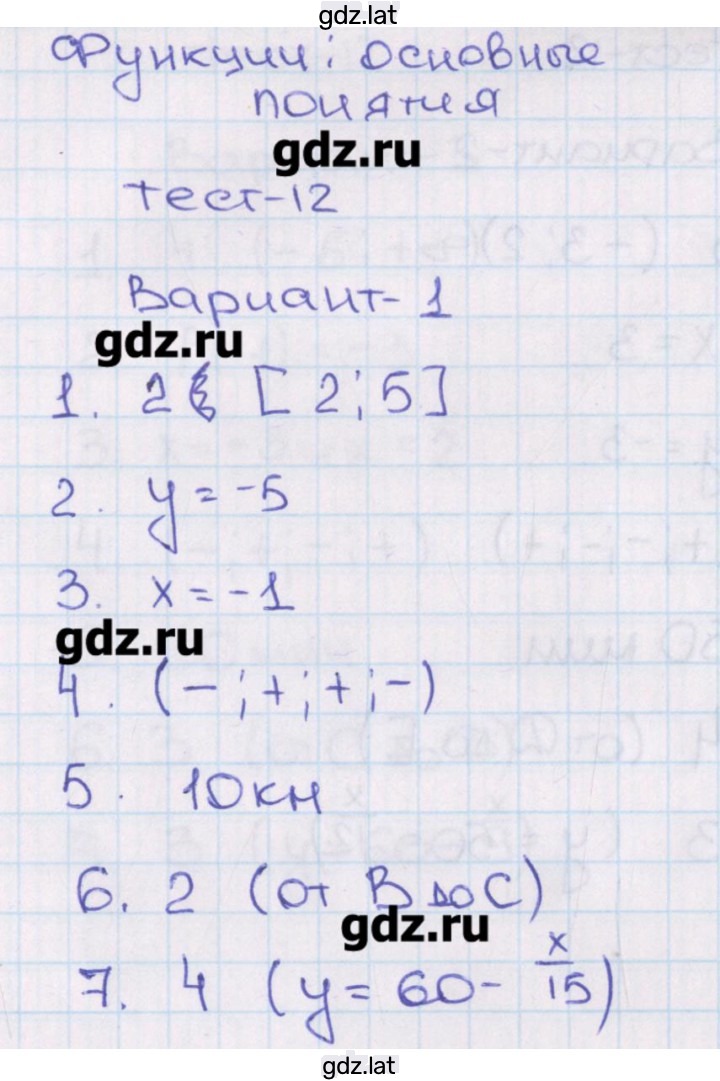 gdz.lat
Функции: основные
понятия
gdz.ru
тест-12
Вариант-1
gdz.ru
1. 2 [2; 5]
2. y = -5
3. x = -1
gdz.ru
4. (-; +; +; -)
5. 10 кн
6. 2 (от В до С)
gdz.ru
7. 4 (y = 60 - x/15)
gdz.lat